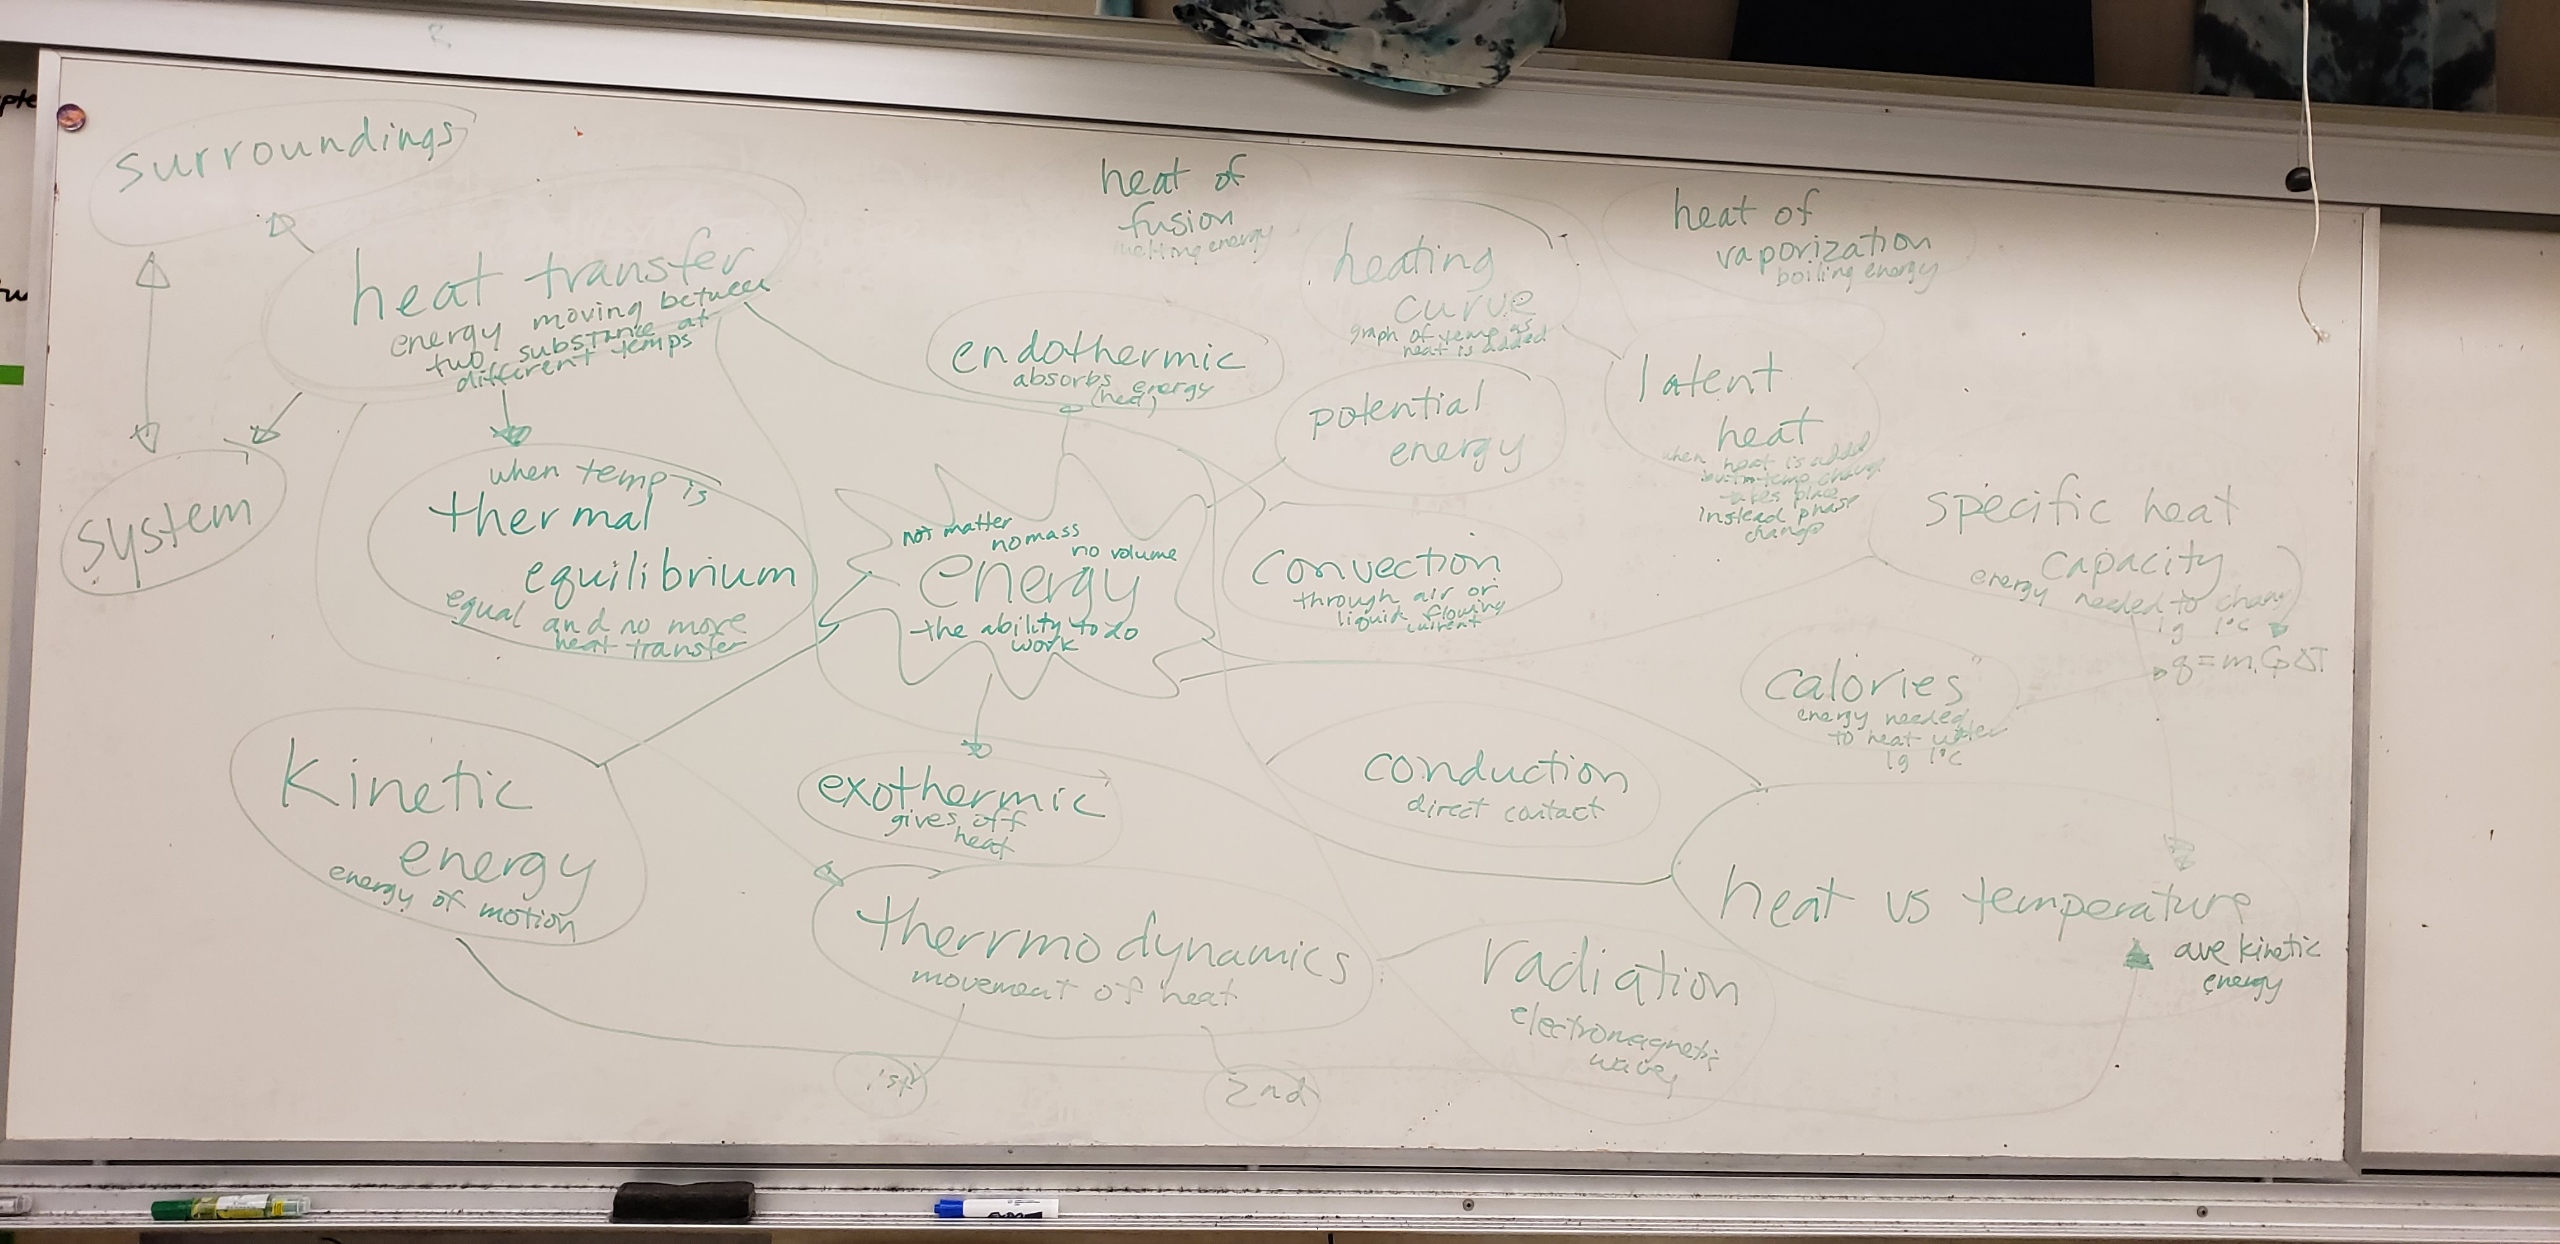 surroundings
heat transfer
energy moving between
two substance at
different temps
system
when temp is
thermal
equilibrium
equal and no more
heat transfer
Kinetic
energy
energy of motion
heat of
fusion
melting energy
endothermic
absorbs energy
(heat)
not matter
no mass
no volume
energy
the ability to do
work
exothermic
gives off
heat
therrmodynamics
movement of heat
1st
2nd
heating
curve
graph of temp as
heat is added
potential
energy
convection
through air or
liquid flowing
current
conduction
direct contact
radiation
electromagnetic
waves
heat of
vaporization
boiling energy
latent
heat
when heat is added
but no temp change
takes place
instead phase
change
specific heat
capacity
energy needed to change
1g 1°C
q = m Cp ΔT
calories
energy needed
to heat water
1g 1°C
heat vs temperature
ave kinetic
energy
EXPO